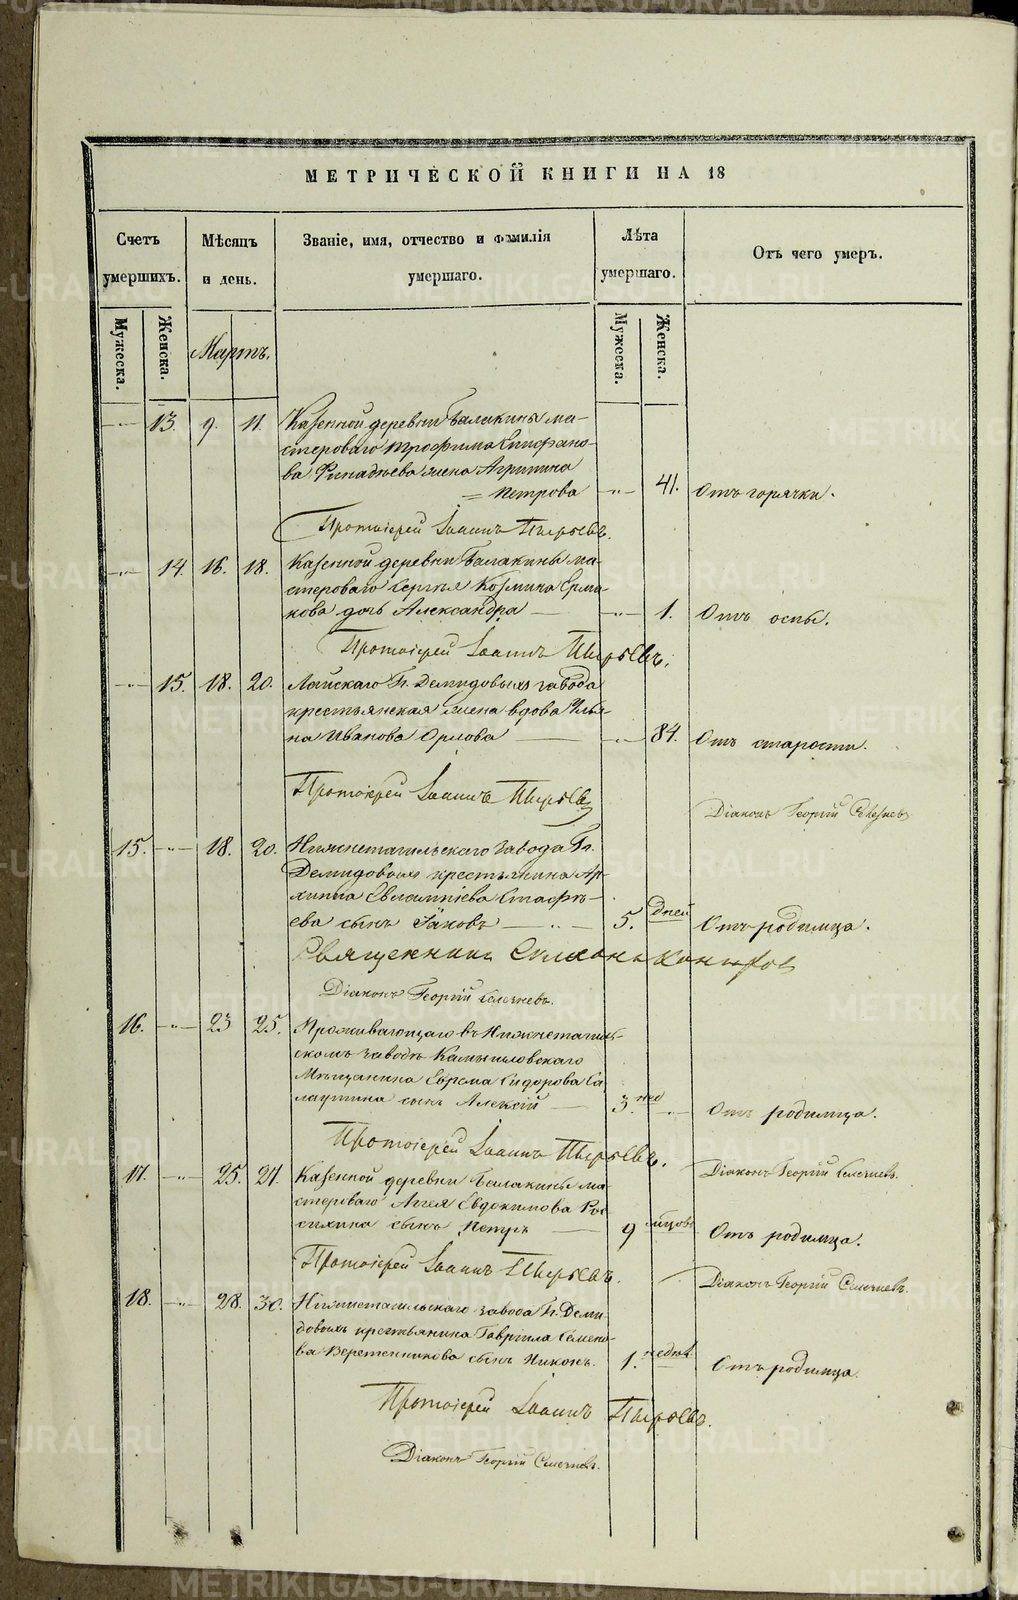 МЕТРИЧЕСКОЙ КНИГИ НА 18
Счетъ умершихъ.
Мѣсяцъ и день.
Званіе, имя, отчество и фамилія умершаго.
Лѣта умершаго.
Отъ чего умеръ.
Мужеска.
Женска.
Мартъ.
Мужеска.
Женска.
13. 9. 11. Казенной деревни Балакины ма-
стероваго Трофима Епифано-
ва жена Агрипина
Петрова 41. Отъ горячки.
Протоіерей Іоаннъ Пырьевъ.
14. 16. 18. Казенной деревни Балакины ма-
стероваго Сергѣя Козмина Ерма-
кова дочь Александра 1. Отъ оспы.
Протоіерей Іоаннъ Пырьевъ.
15. 18. 20. Лайскаго Гг. Демидовыхъ завода
крестьянская жена вдова Улья-
на Иванова Орлова 84. Отъ старости.
Протоіерей Іоаннъ Пырьевъ
Діаконъ Георгій
15. 18. 20. Нижнетагильскаго завода Гг.
Демидовыхъ крестьянина Ар-
хипа Евлампіева Стафѣ-
ева сынъ Іаковъ 5. дней Отъ родимца.
Священникъ
Діаконъ Георгій
16. 23 25. Проживающаго въ Нижнетагиль-
скомъ заводѣ Камышловскаго
Мѣщанина Ефрема Сидорова Са-
лаутина сынъ Алексій 3. нед Отъ родимца.
Протоіерей Іоаннъ Пырьевъ.
Діаконъ Георгій
17. 25. 27. Казенной деревни Балакины ма-
стероваго Аггея Евдокимова Рос-
сихина сынъ Петръ 9 мѣцовъ Отъ родимца.
Протоіерей Іоаннъ Пырьевъ.
Діаконъ Георгій
18. 28. 30. Нижнетагильскаго завода Гг. Деми-
довыхъ крестьянина Гавриила Семено-
ва Веретенникова сынъ Никонъ. 1. недѣл. Отъ родимца.
Протоіерей Іоаннъ Пырьевъ.
Діаконъ Георгій
METRIKI.GASO-URAL.RU